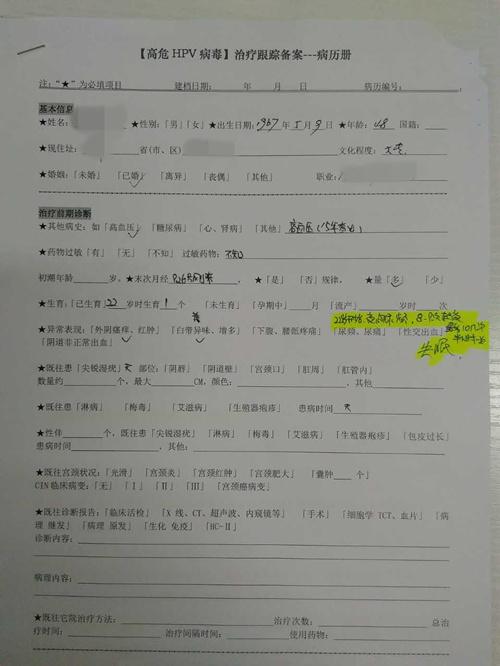 【高危 HPV 病毒】治疗跟踪备案---病历册
注：“★”为必填项目 建档日期： 年 月 日 病历编号：
基本信息
★姓名： ★性别：「男」「女」★出生日期：1967 年 5 月 9 日 ★年龄：48 国籍：
★现住址： 省(市、区) 文化程度：大专
★婚姻：「未婚」「已婚」「离异」「丧偶」「其他」 职业：
治疗前期诊断
★其他病史：如「高血压」「糖尿病」「心、肾病」「其他」高血压(15年
★药物过敏「有」「无」「不知」过敏药物：不知
初潮年龄 岁，★末次月经 ★「是」「否」规律， ★量「多」「少」
★生育：「已生育」22 岁时生育 1 个 「未生育」「孕期中」 月 「流产」 岁时 次
★异常表现：「外阴瘙痒、红肿」「白带异味、增多」「下腹、腰骶疼痛」「尿频、尿痛」「性交出血」
「阴道非正常出血」
★既往患「尖锐湿疣」无 部位：「阴唇」「阴道壁」「宫颈口」「肛周」「肛管内」
数量约 个，最大 CM，颜色： ，其他
★既往患「淋病」「梅毒」「艾滋病」「生殖器疱疹」 患病时间 无
★性伴 个，既往患「尖锐湿疣」「淋病」「梅毒」「艾滋病」「生殖器疱疹」「包皮过长」
患病时间 ，其他：
★既往宫颈状况：「光滑」「宫颈炎」「宫颈红肿」「宫颈肥大」「囊肿 个」
CIN 临床病变：「无」「Ⅰ」「Ⅱ」「Ⅲ」「宫颈癌病变」
★既往诊断报告：「临床活检」「X 线、CT、超声波、内窥镜等」「手术」「细胞学 TCT、血片」「病
理 继发」「病理 原发」「生化 免疫」「HC-Ⅱ」
诊断内容：
病理内容：
★既往它院治疗方法： 治疗次数： 总治
疗时间： 治疗间隔时间： 使用药物：